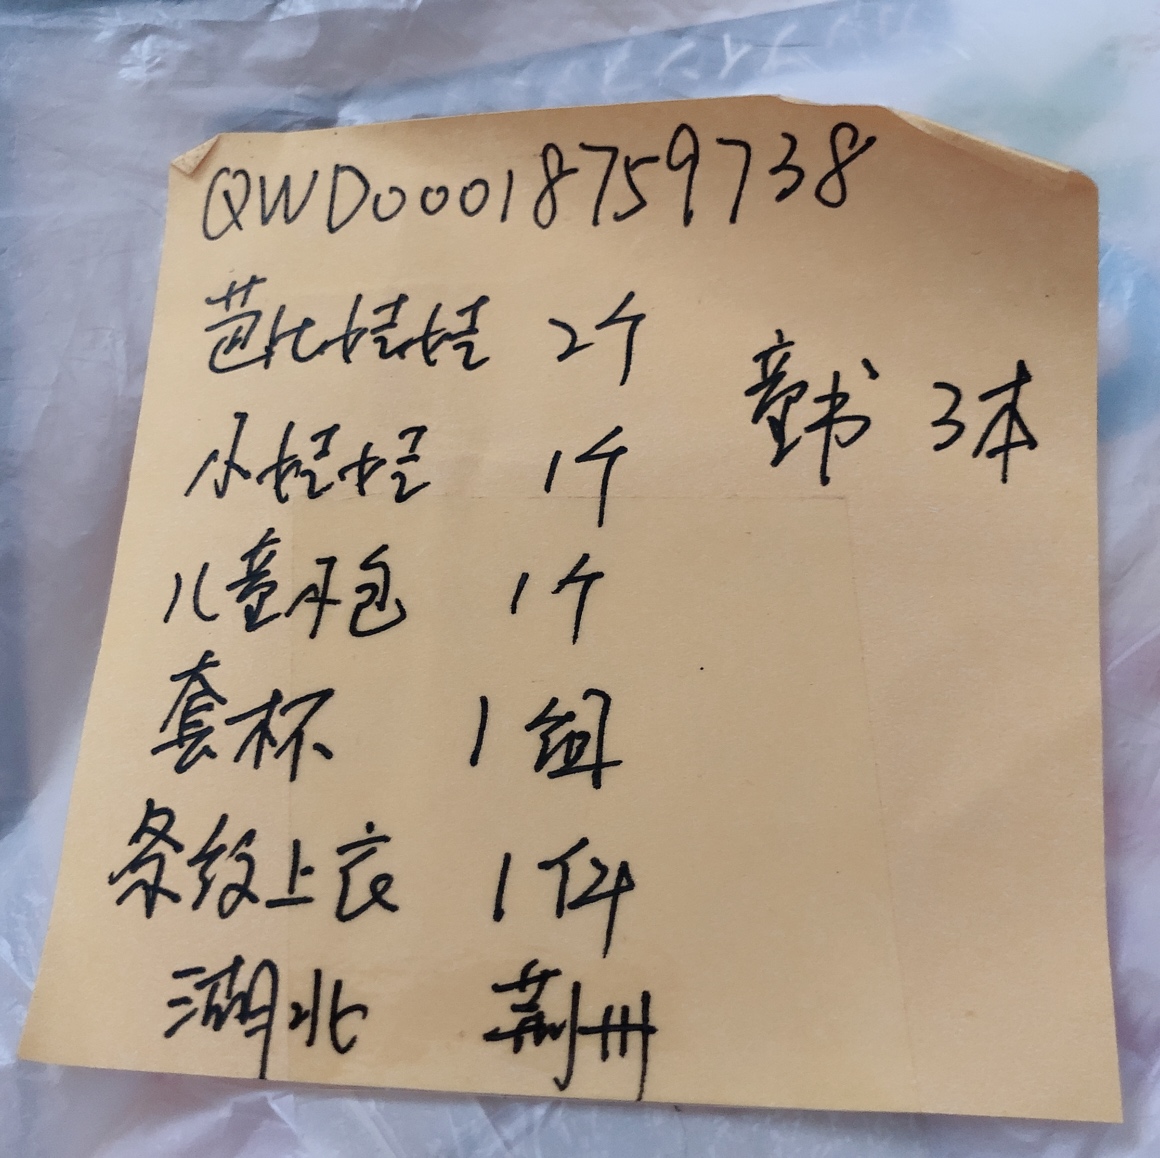 QWD00018759738
芭比娃娃 2个
童书 3本
小娃娃 1个
儿童用包 1个
套杯 1组
条纹上衣 1件
湖北 荆州